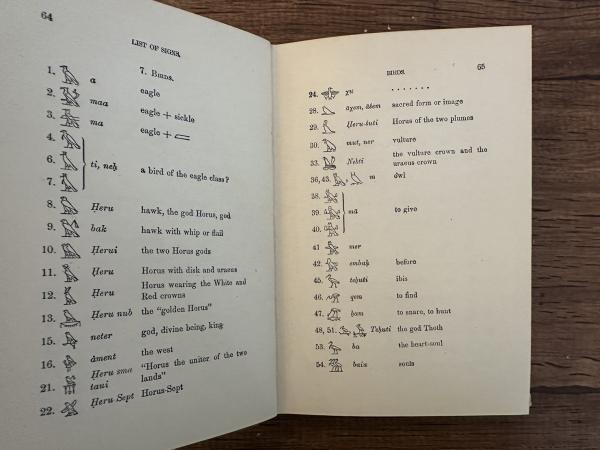 64
LIST OF SIGNS.
7. Birds.
1. a eagle
2. maa eagle + sickle
3. ma eagle +
4.
6. ti, neḥ a bird of the eagle class?
7.
8. Ḥeru hawk, the god Horus, god
9. bak hawk with whip or flail
10. Ḥerui the two Horus gods
11. Ḥeru Horus with disk and uraeus
12. Ḥeru Horus wearing the White and
Red crowns
13. Ḥeru nub the "golden Horus"
15. neter god, divine being, king
16. ȧment the west
21. Ḥeru sma "Horus the uniter of the two
taui lands"
22. Ḥeru Sept Horus-Sept
BIRDS. 65
24. χu . . . . . . .
28. sacred form or image
29. Ḥeru-śuti Horus of the two plumes
30. mut, ner vulture
33. Nebti the vulture crown and the
uraeus crown
36, 43. m owl
38.
39. ma to give
40.
41 mer
42. embaḥ before
45. teḥuti ibis
46. qem to find
47. ḥam to snare, to hunt
48, 51. Teḥuti the god Thoth
53. ba the heart-soul
54. baiu souls